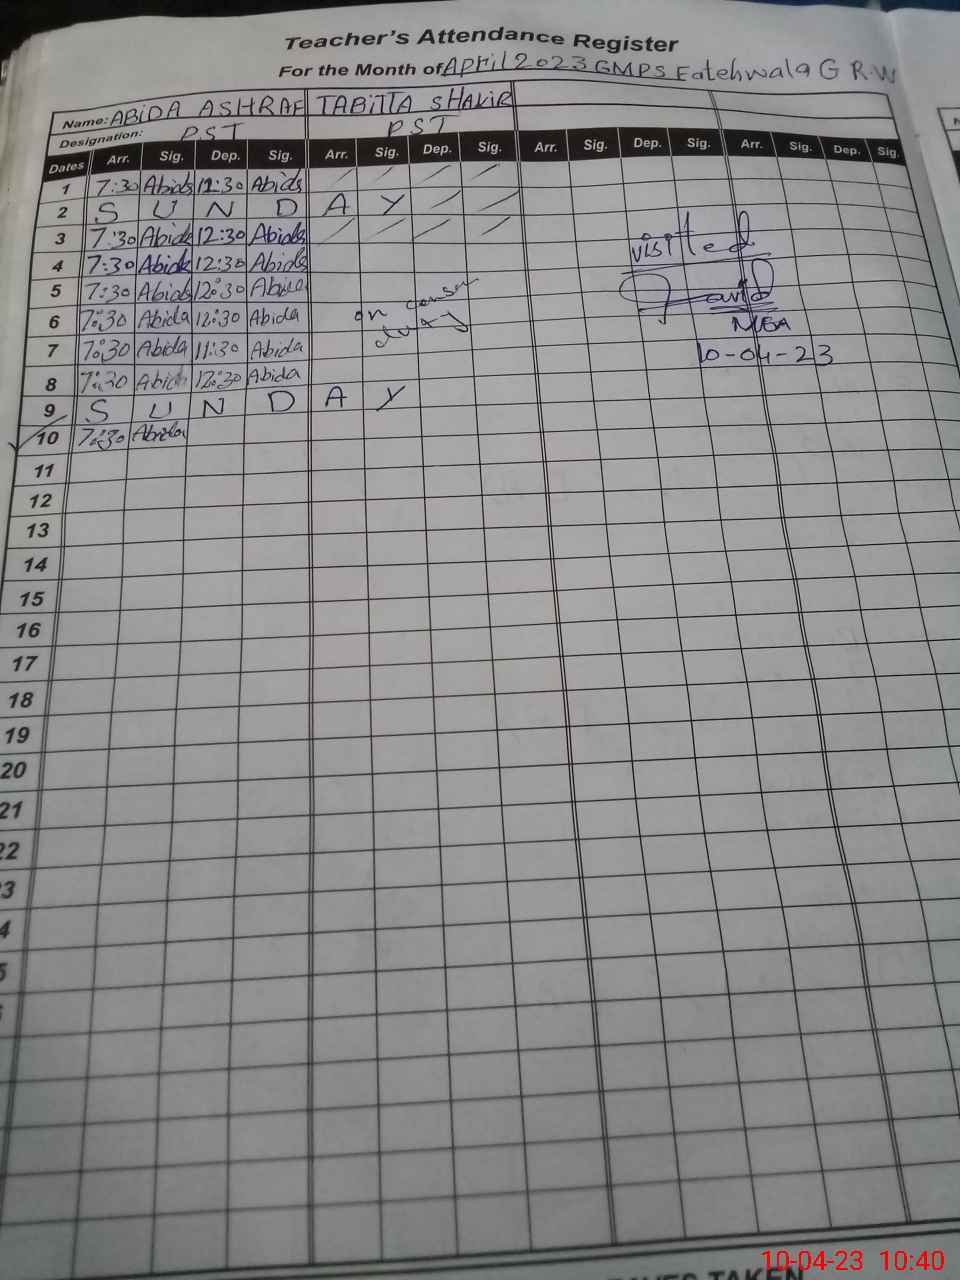 Teacher's Attendance Register
For the Month of April 2023 GMPS Fatehwala G R.W
Name: ABIDA ASHRAF TABITTA SHAKIR
Designation: PST PST
Dates Arr. Sig. Dep. Sig. Arr. Sig. Dep. Sig. Arr. Sig. Dep. Sig. Arr. Sig. Dep. Sig.
1 7:30 Abida 12:30 Abida
2 S U N D A Y
3 7:30 Abida 12:30 Abida
4 7:30 Abida 12:30 Abida
5 7:30 Abida 12:30 Abida
6 7:30 Abida 12:30 Abida
7 7:30 Abida 11:30 Abida
8 7:30 Abida 12:30 Abida
9 S U N D A Y
10 7:30 Abida
on
duty
visited
MEA
10-04-23
11
12
13
14
15
16
17
18
19
20
21
22
3
4
5
TAKEN
10-04-23 10:40